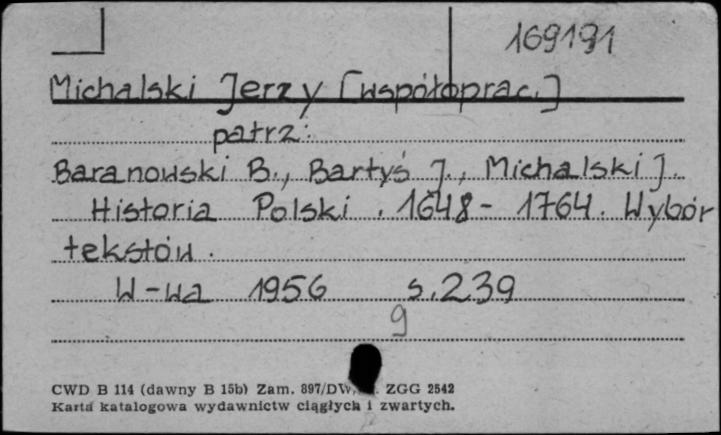 169191
Michalski Jerzy [współoprac.]
patrz:
Baranowski B., Bartyś J., Michalski J.
Historia Polski. 1648 - 1764. Wybór
tekstów.
W-wa 1956 s. 239
9
CWD B 114 (dawny B 15b) Zam. 897/DW, ZGG 2542
Karta katalogowa wydawnictw ciągłych i zwartych.